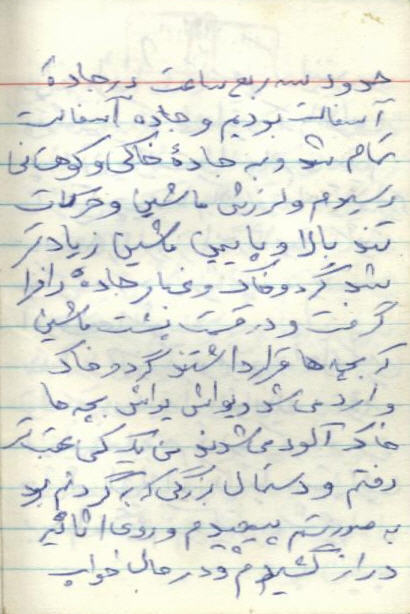 حدود سه ربع ساعت در جادهٔ
آسفالت بودیم و جاده آسفالت
تمام شد و به جادهٔ خاکی و کوهستانی
رسیدیم و لرزش ماشین و حرکات
تند بالا و پایین ماشین زیادتر
شد گرد و خاک و غبار جاده را فرا
گرفت و در قسمت پشت ماشین
که بچه ها قرار داشتند گرد و خاک
وارد می شد و یواش یواش بچه ها
خاک آلود می شدند من یک کمی عقب تر
رفتم و دستمال بزرگی که به گردنم بود
به صورتم پیچیدم و روی اثاثیه
دراز کشیدم و در حال خواب